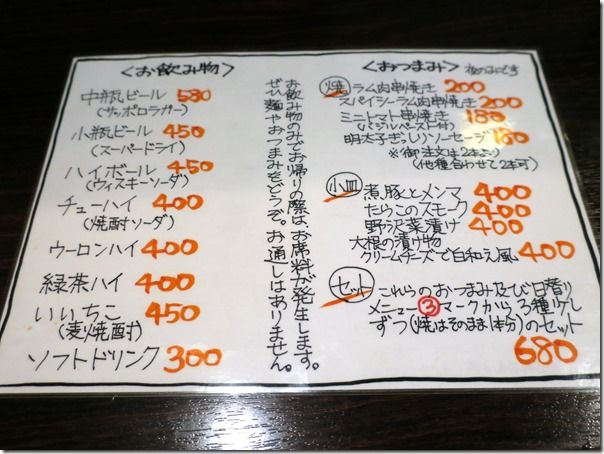 <お飲み物>
中瓶ビール 580
(サッポロラガー)
小瓶ビール 450
(スーパードライ)
ハイボール 450
(ウィスキーソーダ)
チューハイ 400
(焼酎ソーダ)
ウーロンハイ 400
緑茶ハイ 400
いいちこ 450
(麦焼酎)
ソフトドリンク 300
お飲み物のみでお帰りの際は、お席料が発生します。
ぜひ麺やおつまみをどうぞ。お通しはありません。
<おつまみ> 夜のみです
焼 ラム肉串焼き 200
スパイシーラム肉串焼き 200
ミニトマト串焼き 180
(バジルペースト付)
明太子ぎっしりソーセージ 180
※御注文は2本より
(他種合わせて2本可)
小皿 煮豚とメンマ 400
たらこのスモーク 400
野沢菜漬け 400
大根の漬け物
クリームチーズで白和え風 400
セット これらのおつまみ及び日替り
メニュー③マークから、3種少し
ずつ(焼はそのまま1本分)のセット
680